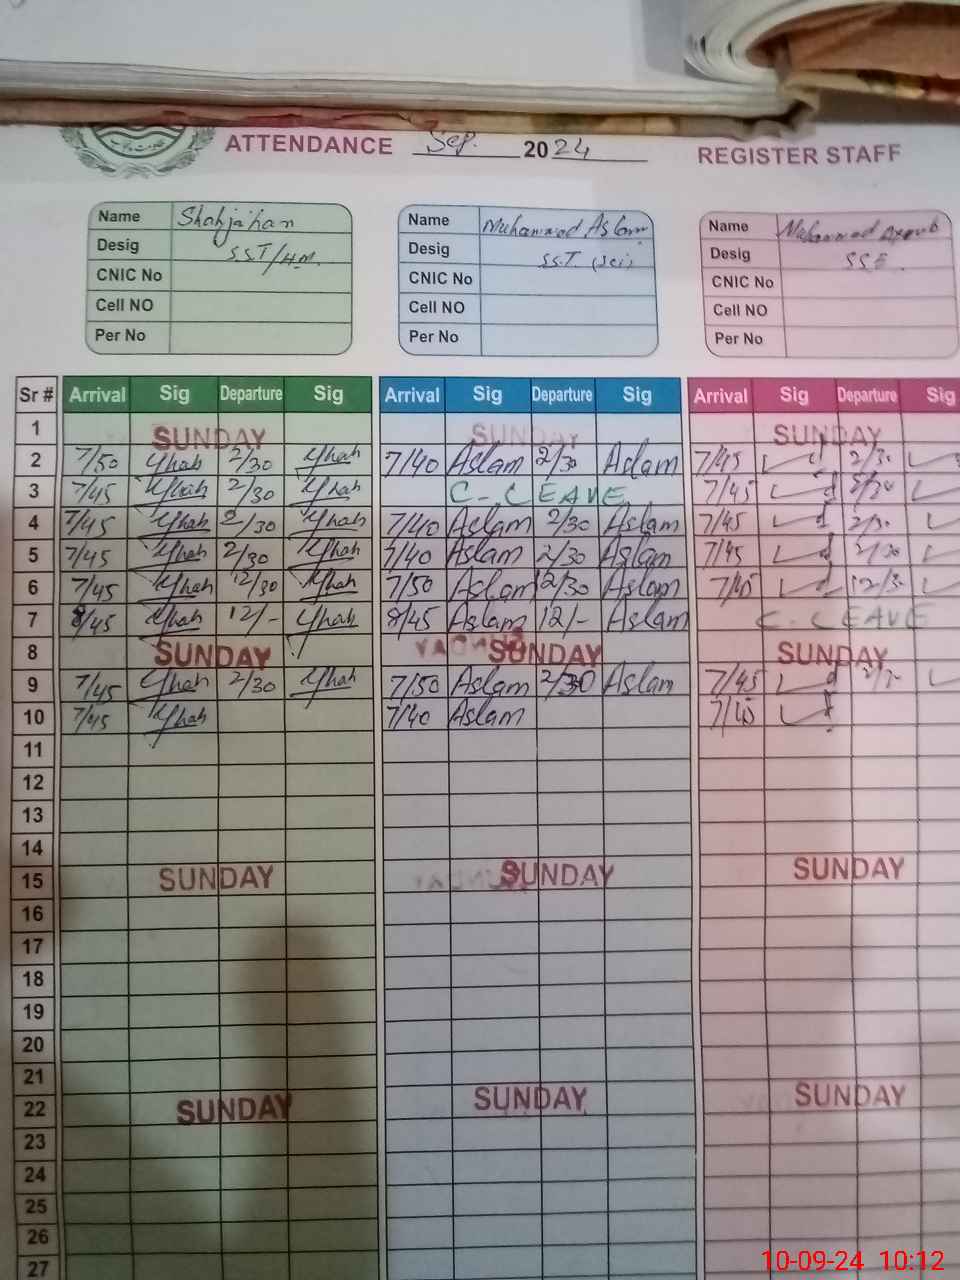 ATTENDANCE Sep. 2024 REGISTER STAFF
Name Shahjahan Name Muhammad Aslam Name Muhammad
Desig SST/HM. Desig SST. (Sci) Desig SSE.
CNIC No CNIC No CNIC No
Cell NO Cell NO Cell NO
Per No Per No Per No
Sr # Arrival Sig Departure Sig Arrival Sig Departure Sig Arrival Sig Departure Sig
1 SUNDAY SUNDAY SUNDAY
2 7/50 2/30 7/40 Aslam 2/30 Aslam 7/45 2/30
3 7/45 2/30 C-LEAVE 7/45
4 7/45 2/30 7/40 Aslam 2/30 Aslam 7/45 2/30
5 7/45 2/30 7/40 Aslam 2/30 Aslam 7/45 2/30
6 7/45 12/30 7/50 Aslam 12/30 Aslam 7/45 12/30
7 8/45 12/- 8/45 Aslam 12/- Aslam C-LEAVE
8 SUNDAY SUNDAY SUNDAY
9 7/45 2/30 7/50 Aslam 2/30 Aslam 7/45
10 7/45 7/40 Aslam 7/45
11
12
13
14
15 SUNDAY SUNDAY SUNDAY
16
17
18
19
20
21
22 SUNDAY SUNDAY SUNDAY
23
24
25
26
27
10-09-24 10:12